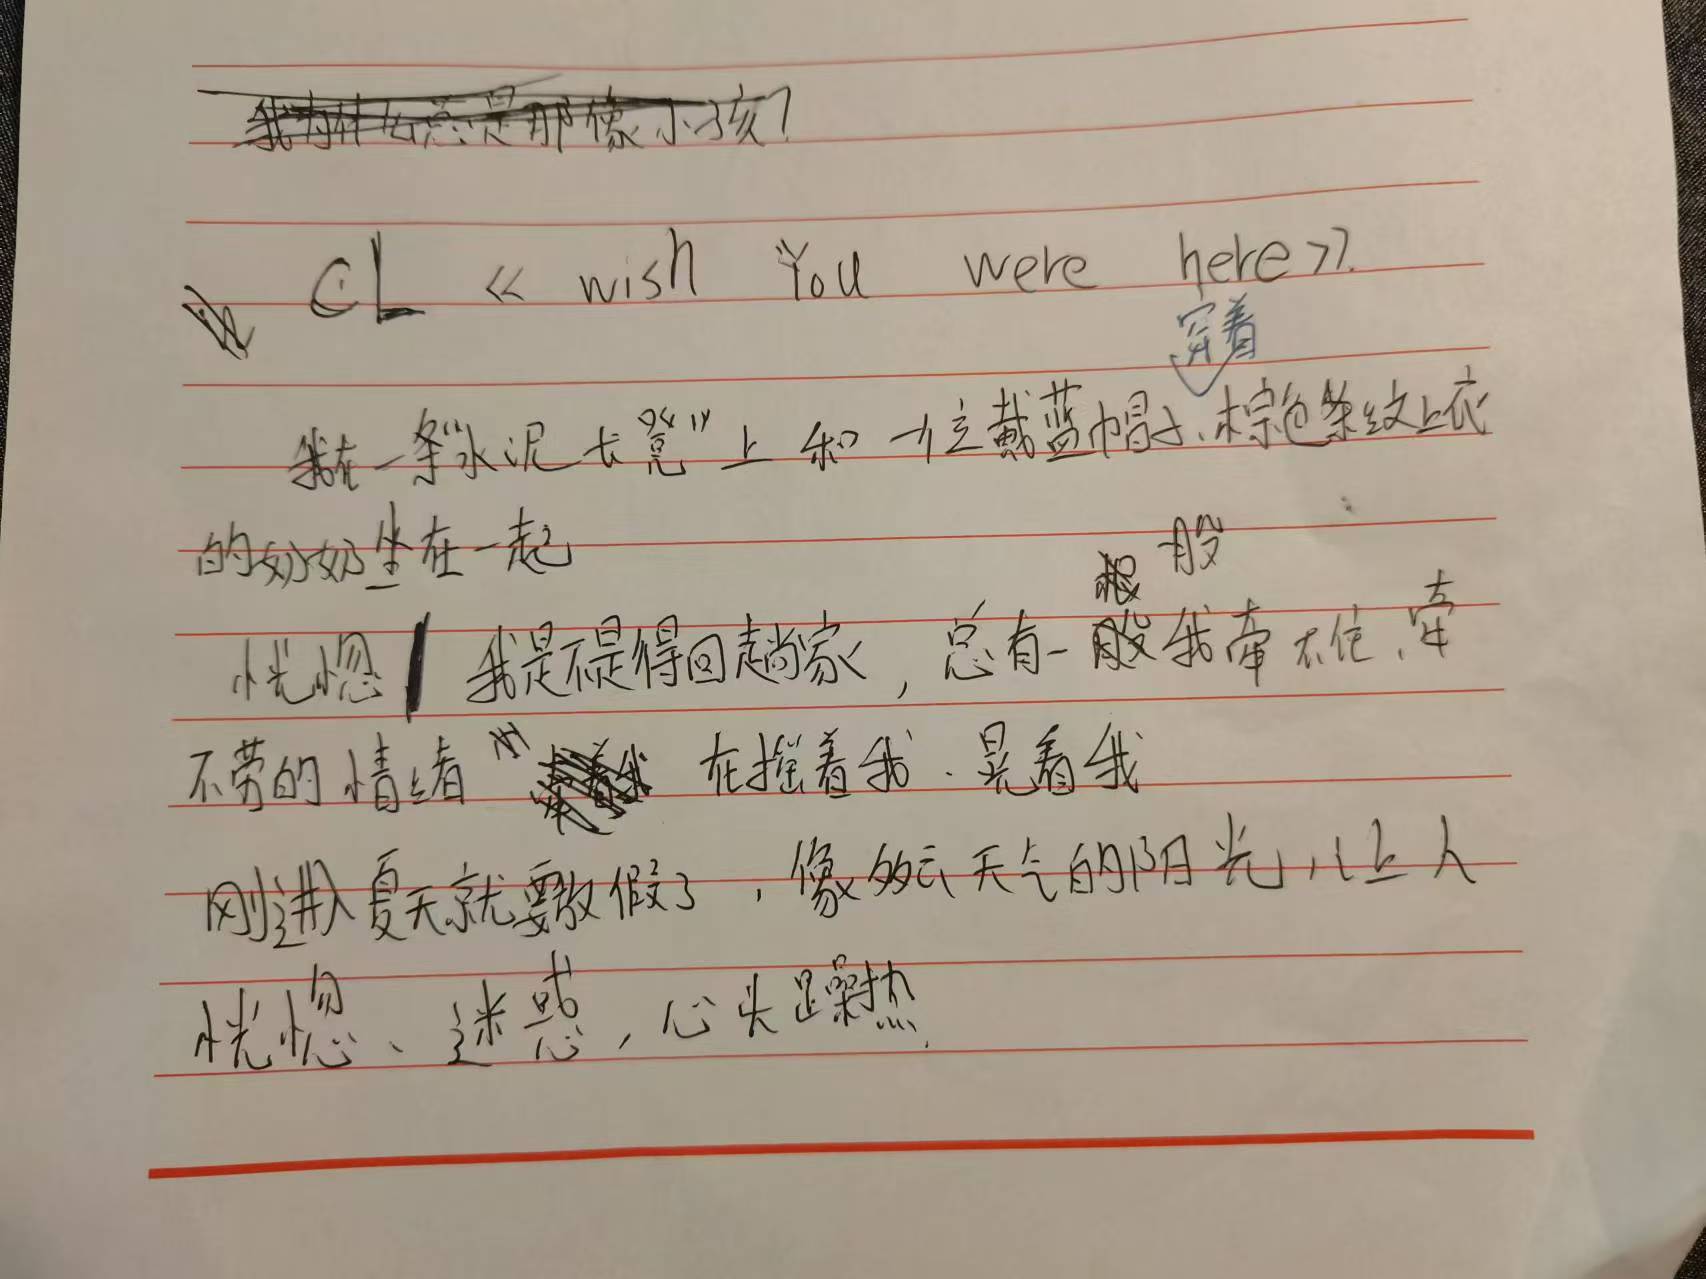 我为什么总是那像小孩?
CL 《wish You were here》.
穿着
我在一条"水泥长凳"上和一位戴蓝帽子、棕色条纹上衣
的奶奶坐在一起
股
恍惚 我是不是得回趟家,总有一股我牵不住、牵
不劳的情绪 在摇着我、晃着我
刚进入夏天就要放假了,像多云天气的阳光,让人
恍惚、迷惑,心头躁热.